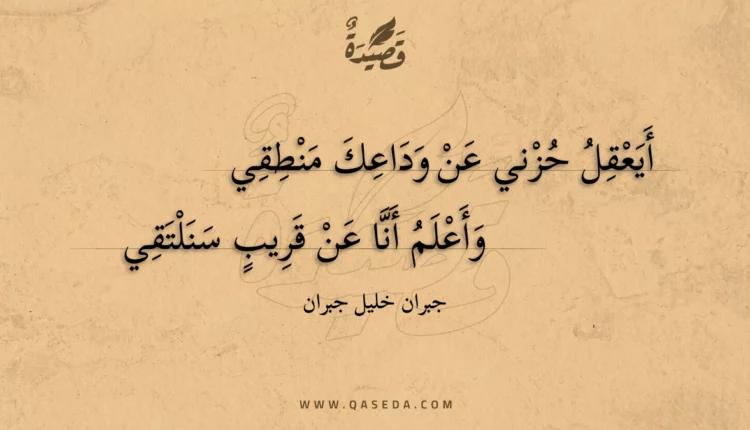 قَصِيْدَةٌ
أَيَعْقِلُ حُزْني عَنْ وَدَاعِكَ مَنْطِقِي
وَأَعْلَمُ أَنَّا عَنْ قَرِيبٍ سَنَلْتَقِي
جبران خليل جبران
WWW.QASEDA.COM